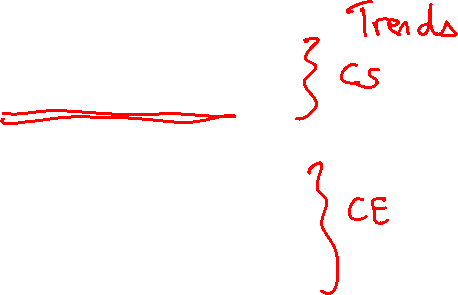 Trends
CS
CE